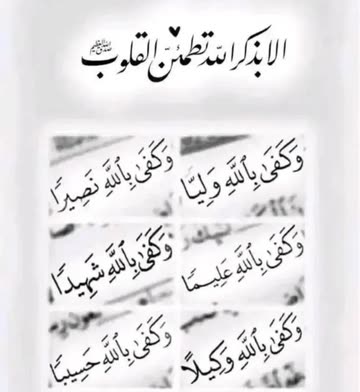 الا بذكر الله تطمئن القلوب
وَكَفَىٰ بِٱللَّهِ وَلِيًّا
وَكَفَىٰ بِٱللَّهِ نَصِيرًا
وَكَفَىٰ بِٱللَّهِ عَلِيمًا
وَكَفَىٰ بِٱللَّهِ شَهِيدًا
وَكَفَىٰ بِٱللَّهِ وَكِيلًا
وَكَفَىٰ بِٱللَّهِ حَسِيبًا